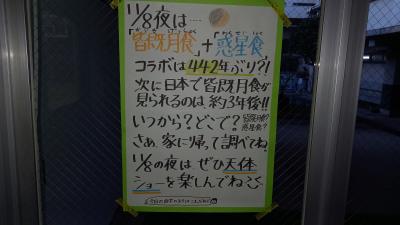 11/8夜は…
皆既月食+惑星食
コラボは442年ぶり?!
次に日本で皆既月食が
見られるのは、約3年後!!
いつから?どこで?皆既月食?惑星食?
さぁ、家に帰って調べてね!
11/8の夜は ぜひ天体
ショーを楽しんでね